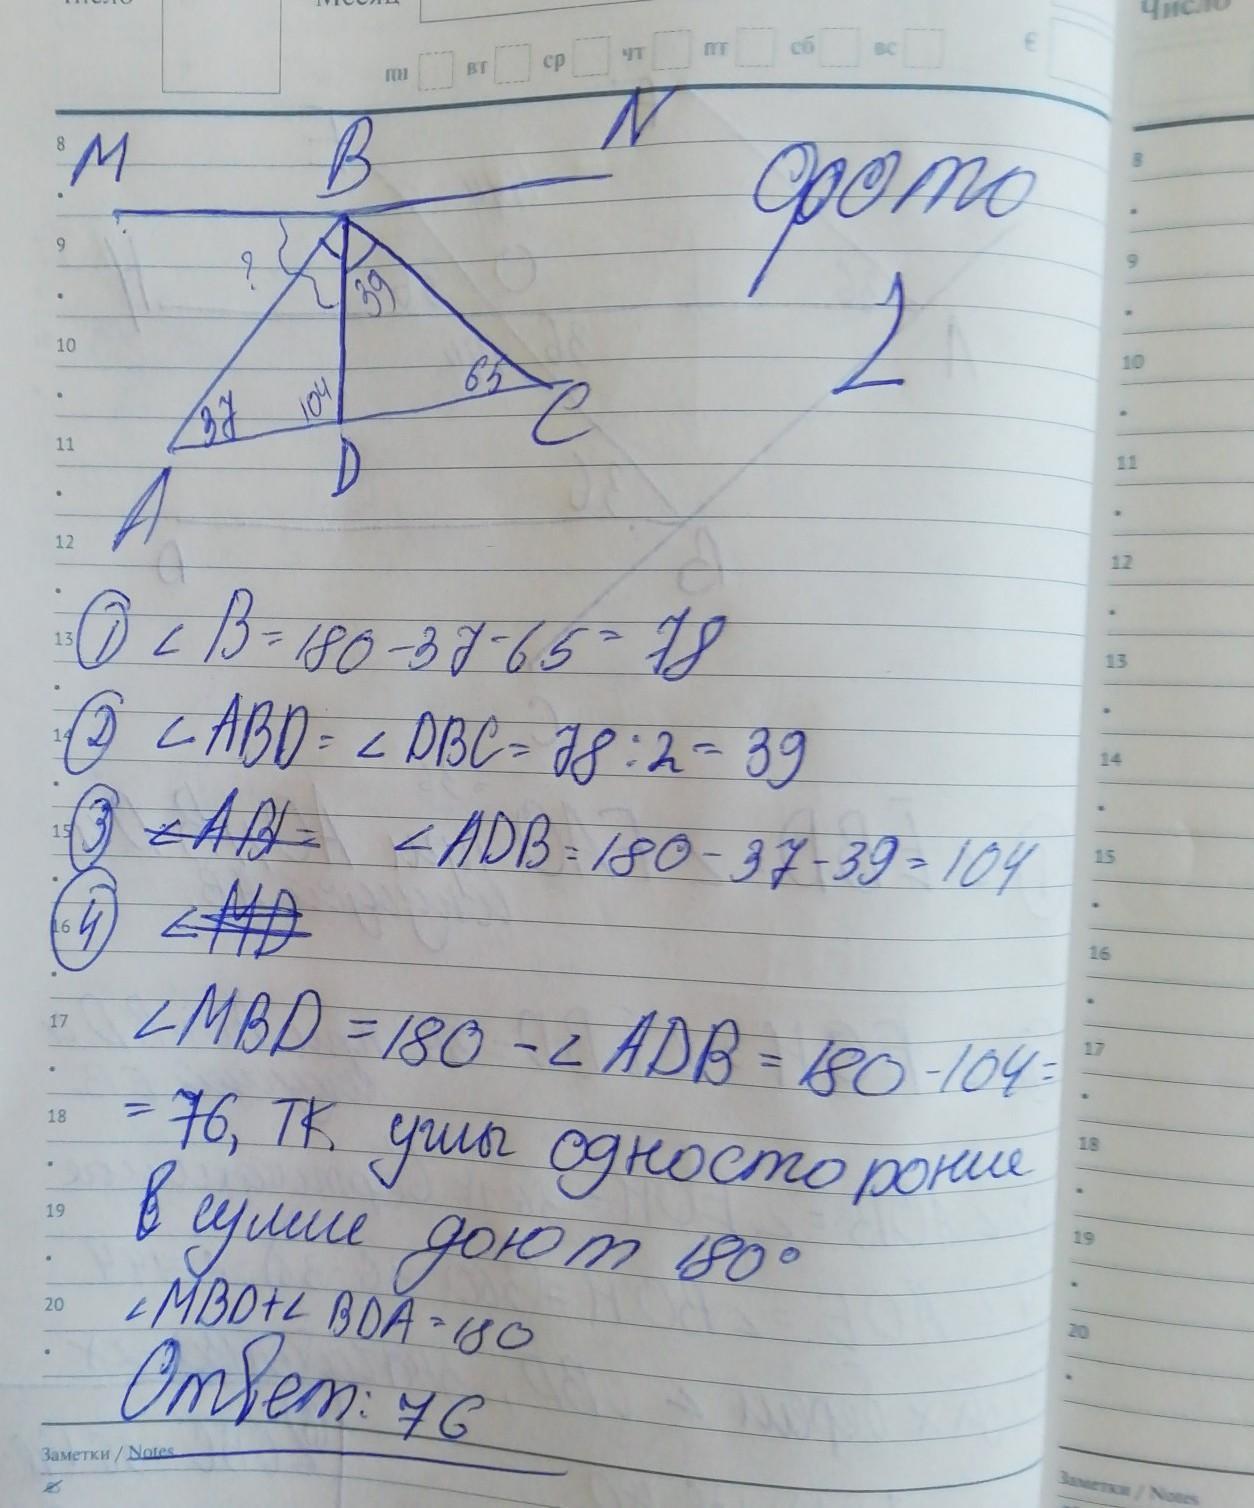 Число
Месяц
Число
пн вт ср чт пт сб вс
M B N
фото
2
?
39
37 104 65
A D C
8
9
10
11
12
13
14
15
16
17
18
19
20
① ∠ B = 180 - 37 - 65 = 78
② ∠ ABD = ∠ DBC = 78 : 2 = 39
③ ∠ADB = 180 - 37 - 39 = 104
④
∠MBD = 180 - ∠ ADB = 180 - 104 =
= 76, ТК углы односторонние
в сумме доют 180°
∠MBD + ∠ BDA = 180
Ответ: 76
Заметки / Notes
8
9
10
11
12
13
14
15
16
17
18
19
20
Заметки / Notes